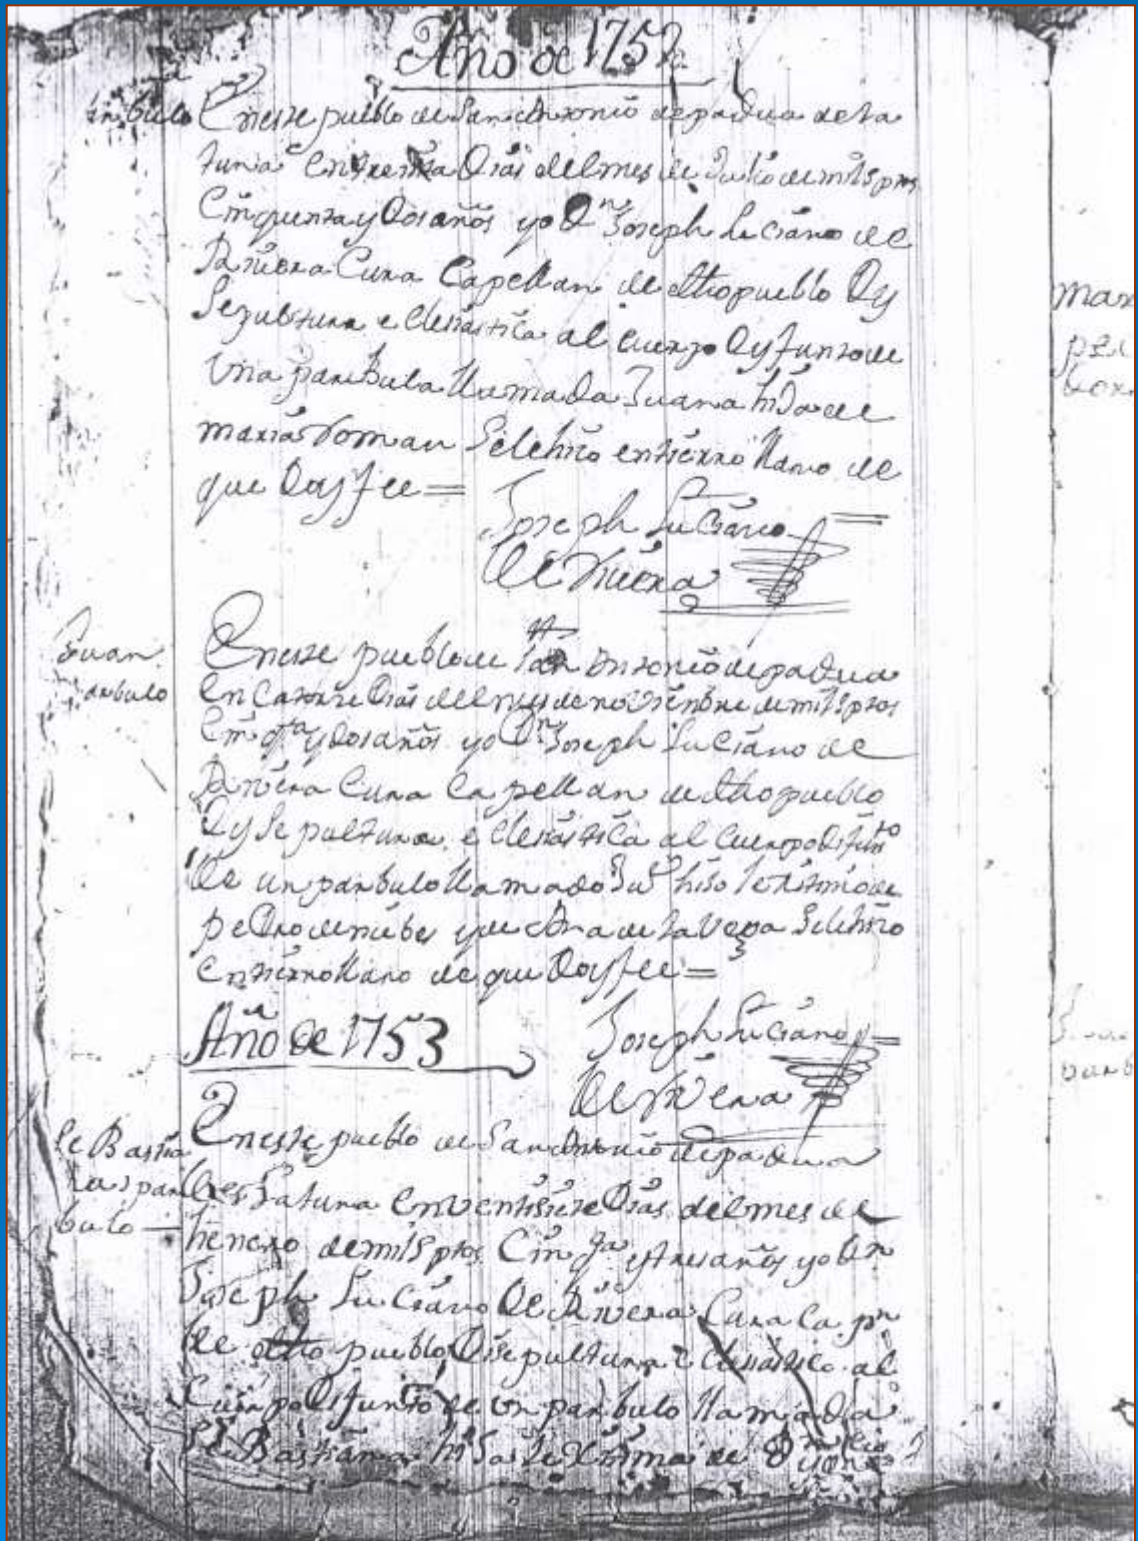 Año de 1752
En este pueblo de San Antonio de padua de la
tuna en treinta Dias del mes de Julio de mil sptos
Cinquenta y Dos años yo Dn Joseph Luciano de
Rivera Cura Capellan de dho pueblo Dy
Sepultura eclesiastica al cuerpo Dyfunto de
Una parbula llamada Juana hija de
maria Roman Se le hiso entierro llano de
que Doy fee =
Joseph Luciano
De Rivera
Juan
parbulo
En este pueblo de San Antonio de padua
en Catorse Dias del mes de noviembre de mil sptos
Cinqta y Dos años yo Dn Joseph Luciano de
Rivera Cura Capellan de dho pueblo
Dy Sepultura eclesiastica al cuerpo Difunto
De un parbulo llamado Jun hijo lexitimo de
pedro de niebes y de Ana de la Vega Se le hiso
entierro llano de que Doy fee =
Joseph Luciano
De Rivera
Año de 1753
Se Bastiana
parbulo
En este pueblo de San Antonio de padua
de la tuna en ventisiete Dias del mes de
henero de mil sptos Cinqta y tres años yo Dn
Joseph Luciano De Rivera Cura Capn
de dho pueblo Di sepultura eclesiastica al
Cuerpo Difunto de un parbulo llamada
Se Bastiana hija lexitima de